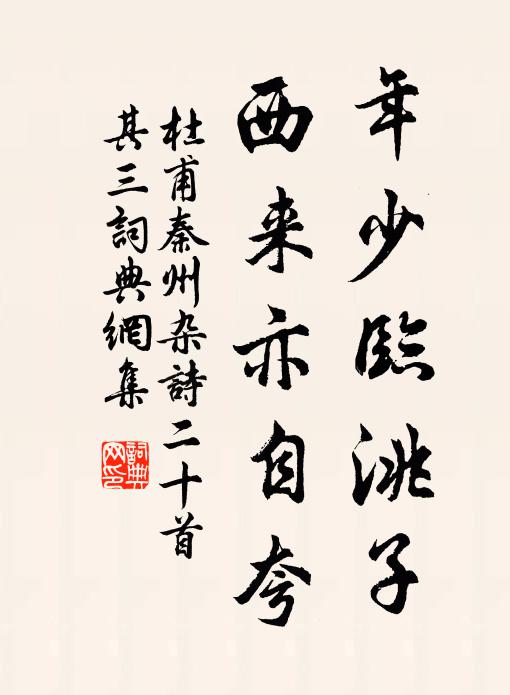 年少臨洮子
西来亦自夸
杜甫秦州杂詩二十首
其三詞典網集
詞典網印